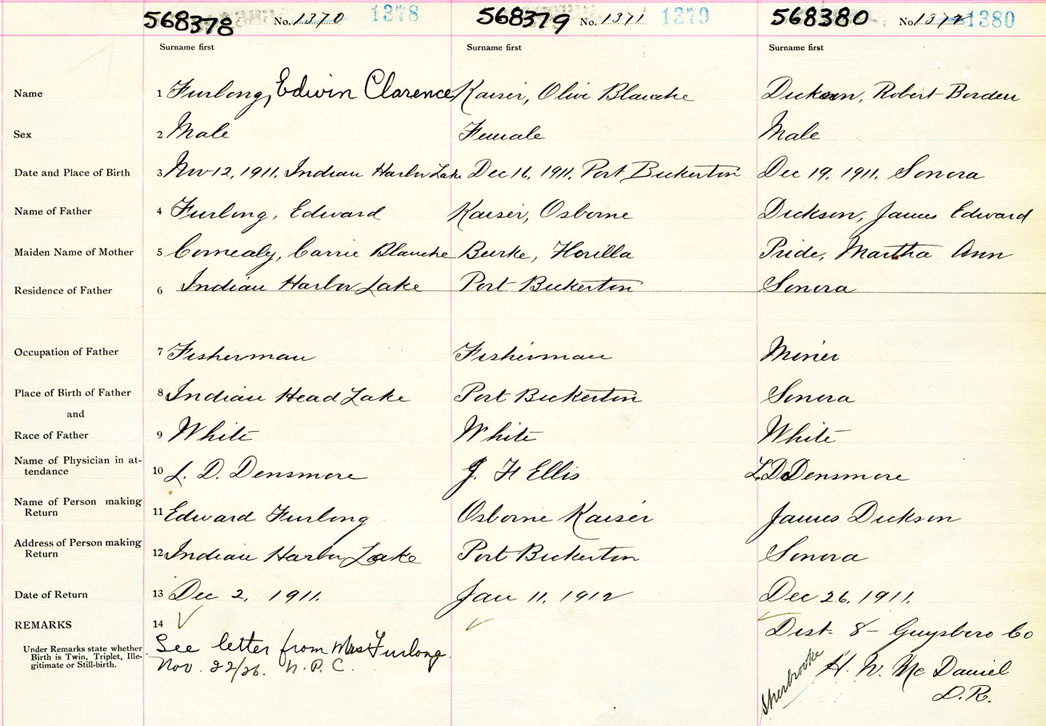 568378 No. 1370 1378 568379 No. 1371 1379 568380 No. 1372 1380
Surname first Surname first Surname first
Name 1 Furlong, Edwin Clarence Kaiser, Olive Blanche Dickson, Robert Borden
Sex 2 Male Female Male
Date and Place of Birth 3 Nov 12, 1911. Indian Harbor Lake Dec 16, 1911. Port Bickerton Dec 19, 1911. Sonora
Name of Father 4 Furlong, Edward Kaiser, Osborne Dickson, James Edward
Maiden Name of Mother 5 Comealy, Carrie Blanche Burke, Horilla Pride, Martha Ann
Residence of Father 6 Indian Harbor Lake Port Bickerton Sonora
Occupation of Father 7 Fisherman Fisherman Miner
Place of Birth of Father 8 Indian Head Lake Port Bickerton Sonora
and
Race of Father 9 White White White
Name of Physician in at-
tendance 10 L. D. Densmore J. H Ellis L.D. Densmore
Name of Person making
Return 11 Edward Furlong Osborne Kaiser James Dickson
Address of Person making
Return 12 Indian Harbor Lake Port Bickerton Sonora
Date of Return 13 Dec 2, 1911. Jan 11, 1912 Dec 26, 1911.
REMARKS 14
Under Remarks state whether
Birth is Twin, Triplet, Ille-
gitimate or Still-birth.
See letter from Mrs Furlong.
Nov. 22/26. N. P. C.
Dist. 8 - Guysboro Co
Sherbrooke
H. W. McDaniel
D.R.